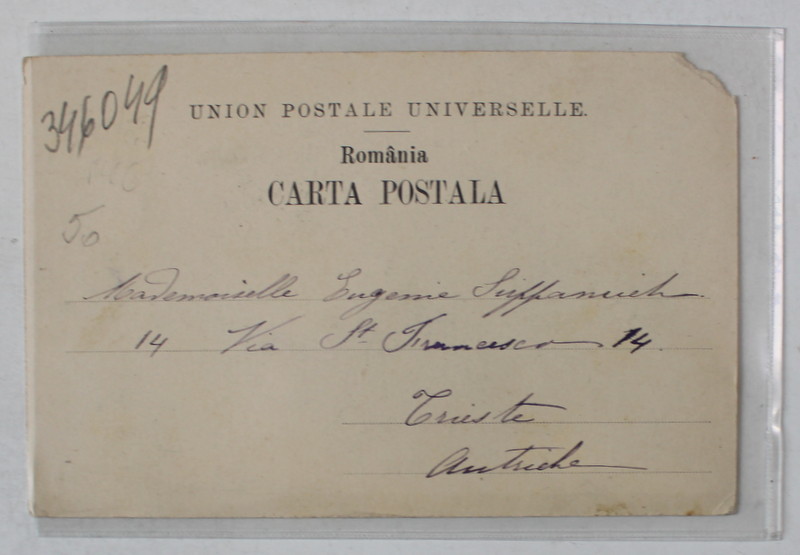 346049
UNION POSTALE UNIVERSELLE.
România
CARTA POSTALA
50
Mademoiselle Eugenie
14 Via St Francesco 14.
Trieste
Autriche